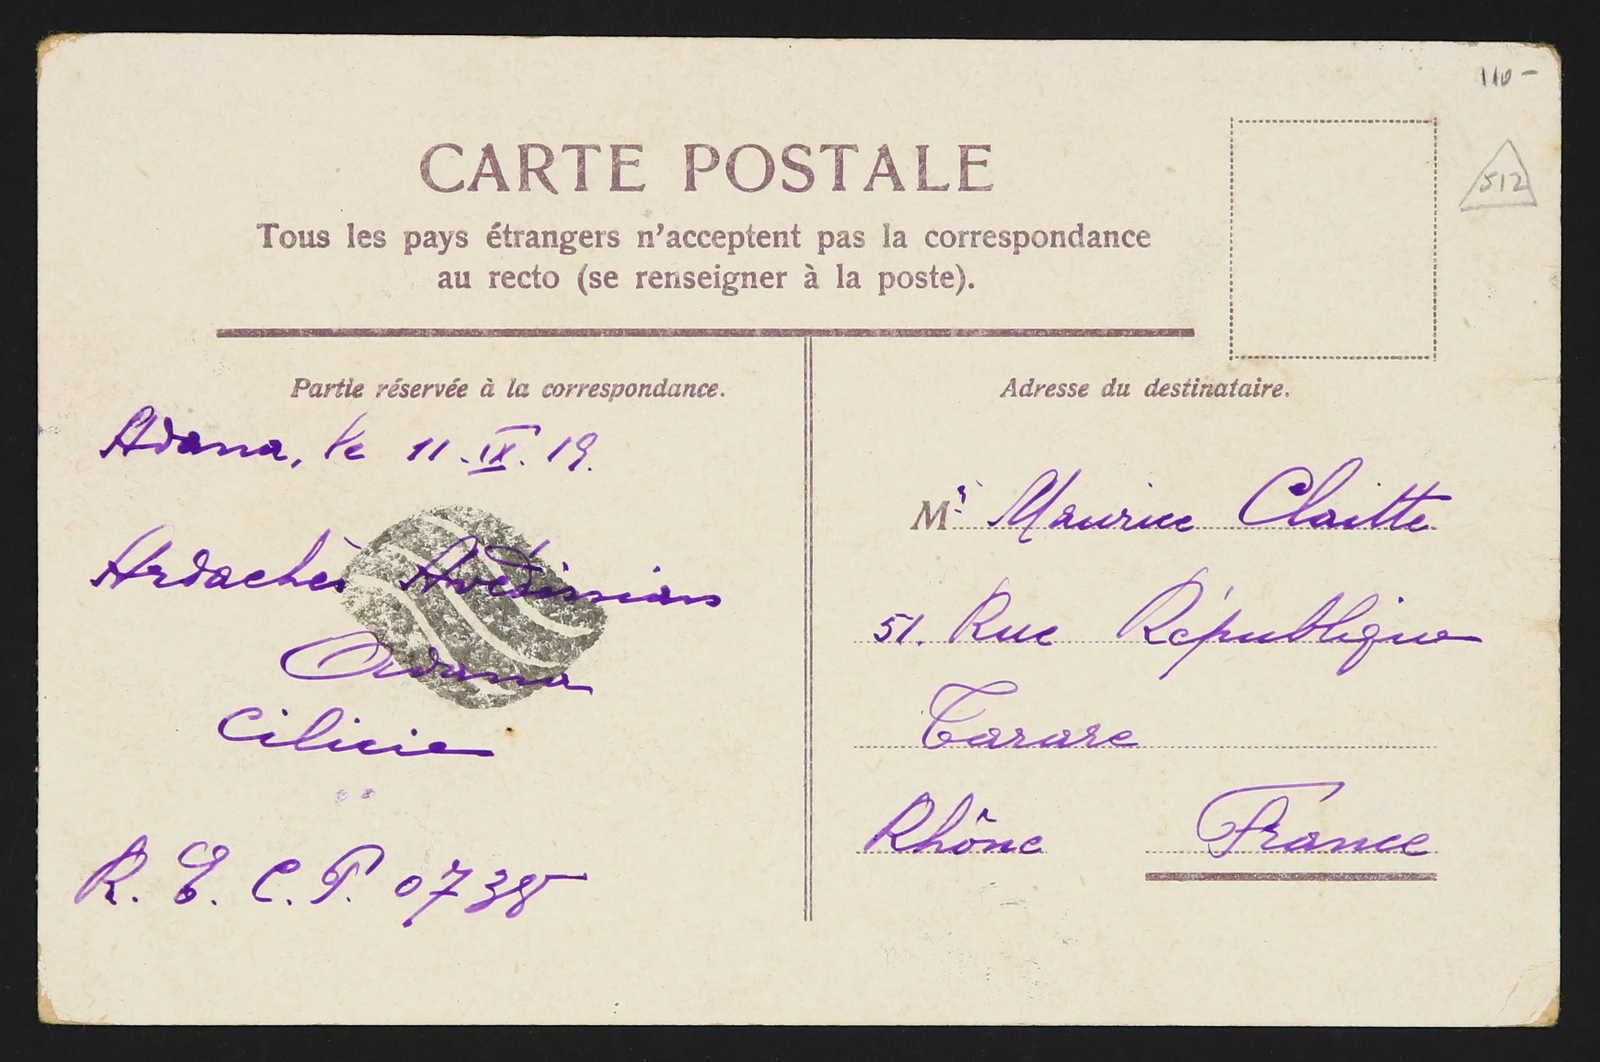 110-
512
CARTE POSTALE
Tous les pays étrangers n'acceptent pas la correspondance
au recto (se renseigner à la poste).
Partie réservée à la correspondance.
Adana, le 11.IX.19.
Ardachès Avedissian
Adana
Cilicie
R. E. C. P. 0738
Adresse du destinataire.
Mr Maurice Claitte
51. Rue République
Tarare
Rhône France